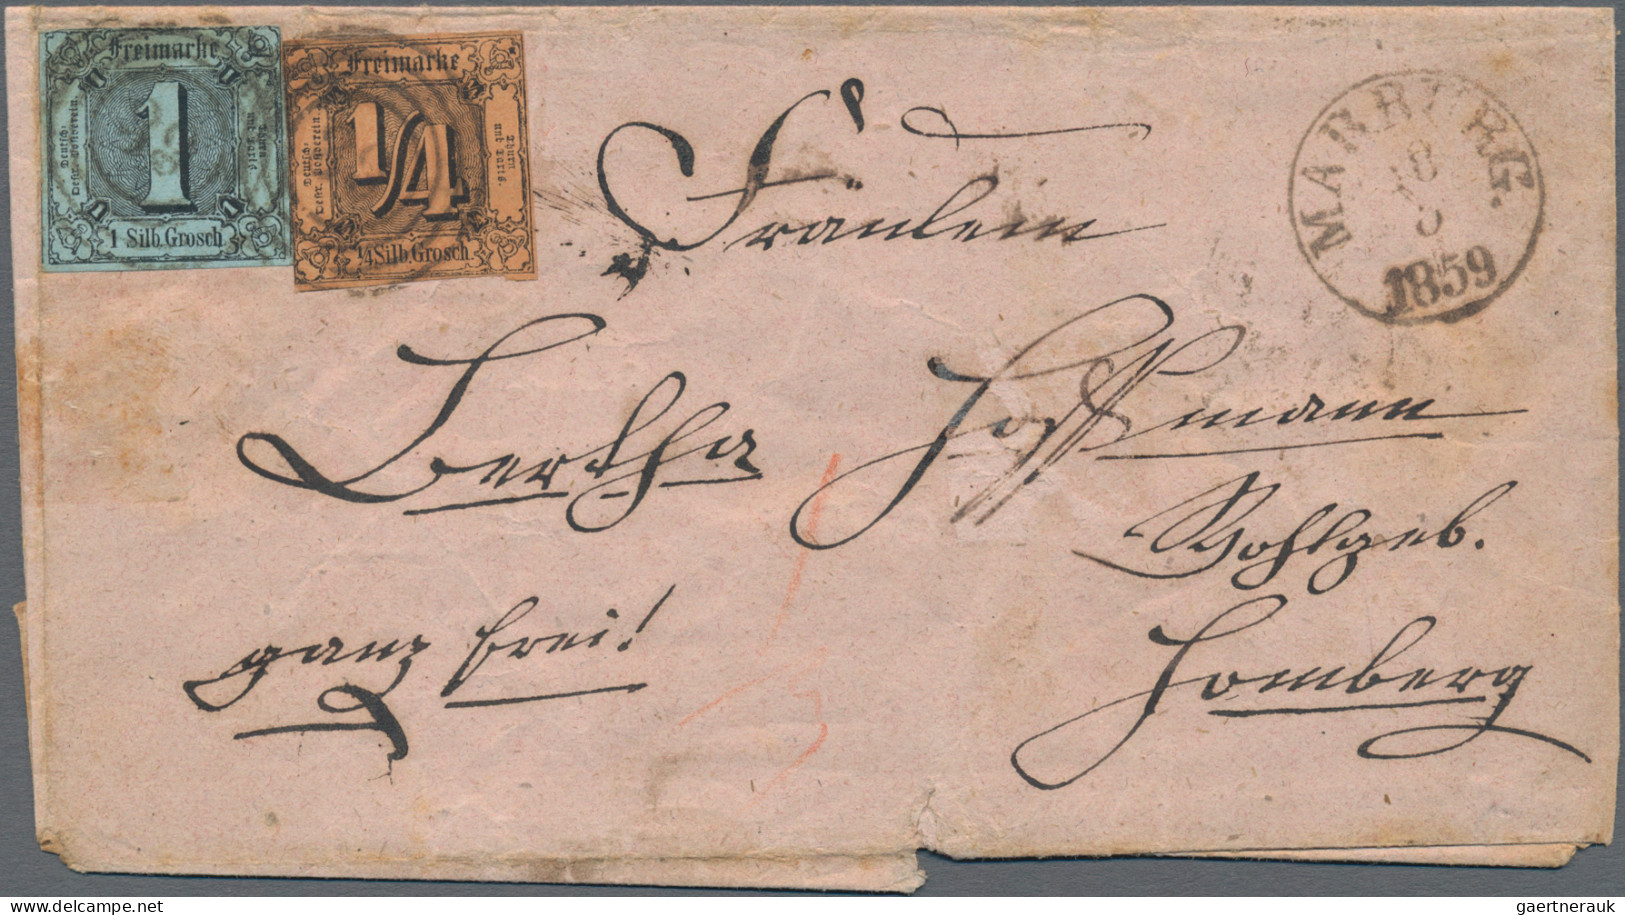 Freimarke
Deutsch.
Oestr. Postverein.
1
Thurn
und Taxis
1 Silb. Grosch
Freimarke
Deutsch.
Oestr. Postverein.
1/4
Thurn
und Taxis.
1/4 Silb. Grosch
MARBURG.
18
5
1859
Fräulein
Bertha Hoffmann
Wohlgeb.
ganz frei!
Homberg
www.delcampe.net
gaertnerauk